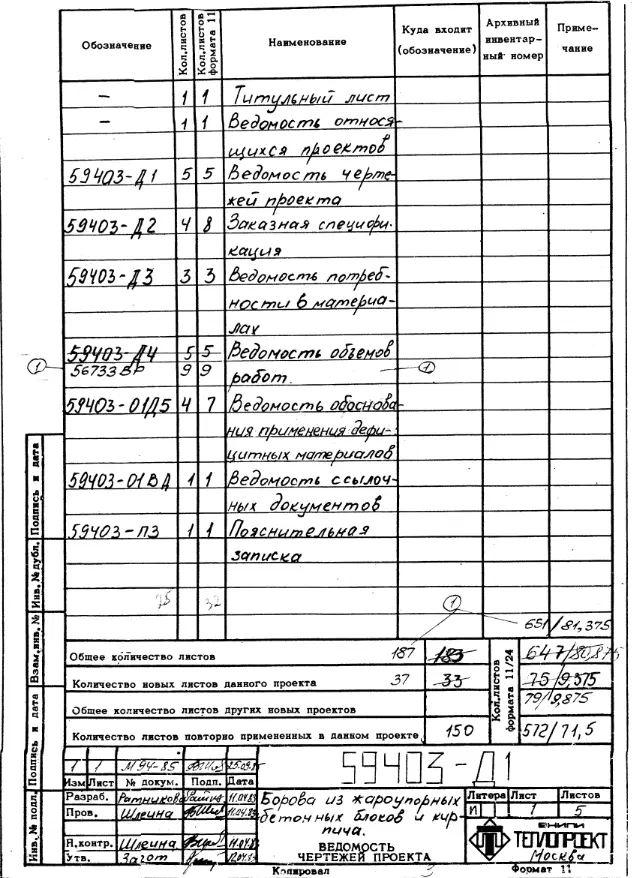 Обозначение Кол.листов Кол.листов формата 11 Наименование Куда входит (обозначение) Архивный инвентар- ный номер Приме- чание
— 1 1 Титульный лист
— 1 1 Ведомость относя-
щихся проектов
59403-Д1 5 5 Ведомость черте-
жей проекта
59403-Д2 4 8 Заказная специфи-
кация
59403-Д3 3 3 Ведомость потреб-
ности в материа-
лах
59403-Д4 5 5 Ведомость объемов
1 56733ВР 9 9 работ. 1
59403-01Д5 4 7 Ведомость обоснова-
ния применения дефи-
цитных материалов
59403-01ВД 1 1 Ведомость ссылоч-
ных документов
59403-ПЗ 1 1 Пояснительная
записка
1
651/81,375
Общее количество листов 187 183 Кол.листов формата 11/24 647/80,875
Количество новых листов данного проекта 37 33 75/9,375
79/9,875
Общее количество листов других новых проектов
Количество листов повторно примененных в данном проекте 150 572/71,5
1 1 М94-85
59403-Д1
Изм Лист № докум. Подп. Дата
Разраб. Ратникова 11.04.83
Пров. Шлеина 11.04.83
Н.контр. Шлеина 11.04.83
Утв. Загот 12.04.83
Борова из жароупорных
бетонных блоков и кир-
пича.
ВЕДОМОСТЬ
ЧЕРТЕЖЕЙ ПРОЕКТА
Литера Лист Листов
И 1 5
ВНИПИ
ТЕПЛОПРОЕКТ
Москва
Копировал З Формат 11
Инв.№ подл. Подпись и дата Взам.инв.№ Инв.№дубл. Подпись и дата